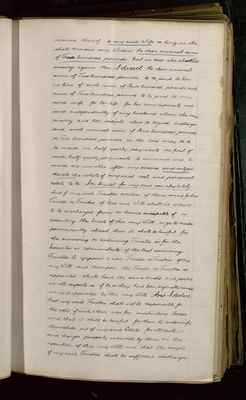 receive thereof to my said Wife so long as she
shall remain my Widow the clear annual sum
of Four hundred pounds but in case she shall
marry again then I direct the clear annual
sum of Two hundred pounds to be paid to her
in lieu of said sum of Four hundred pounds such
sum of Two hundred pounds to be paid to my
said wife for her life for her own separate use
and independently of any husband whom she may
marry and her receipts alone to be good discharges
and such annual sum of Four hundred pounds
or Two hundred pounds as the case may be to
be made in half yearly payments the first of
such half yearly payments to commence and be
made six months after my decease and subject
the whole of my said real and personal
estate to be In trust for my
that if my said Trustees or either of them or any future
Trustee or Trustees of this my Will shall die or desire
to be discharged from or become incapable of
executing the trusts of this my Will or go to reside
permanently abroad then it shall be lawful for
the surviving or continuing Trustee or for the
Executor or administrator of the last surviving
Trustee to appoint a new Trustee or Trustees of this
my Will and thereupon the Trustee or Trustees so
appointed shall have the same trusts and powers
in all respects as if he or they had been originally
appointed by this my Will And I declare
that my said Trustees shall not be responsible for
the acts of each other nor for involuntary losses
and that it shall be lawful for them to indemnify
themselves out of my said Estate for all costs
and charges properly incurred by them in the
execution of this my Will and that the receipt
of my said Trustees shall be sufficient discharges